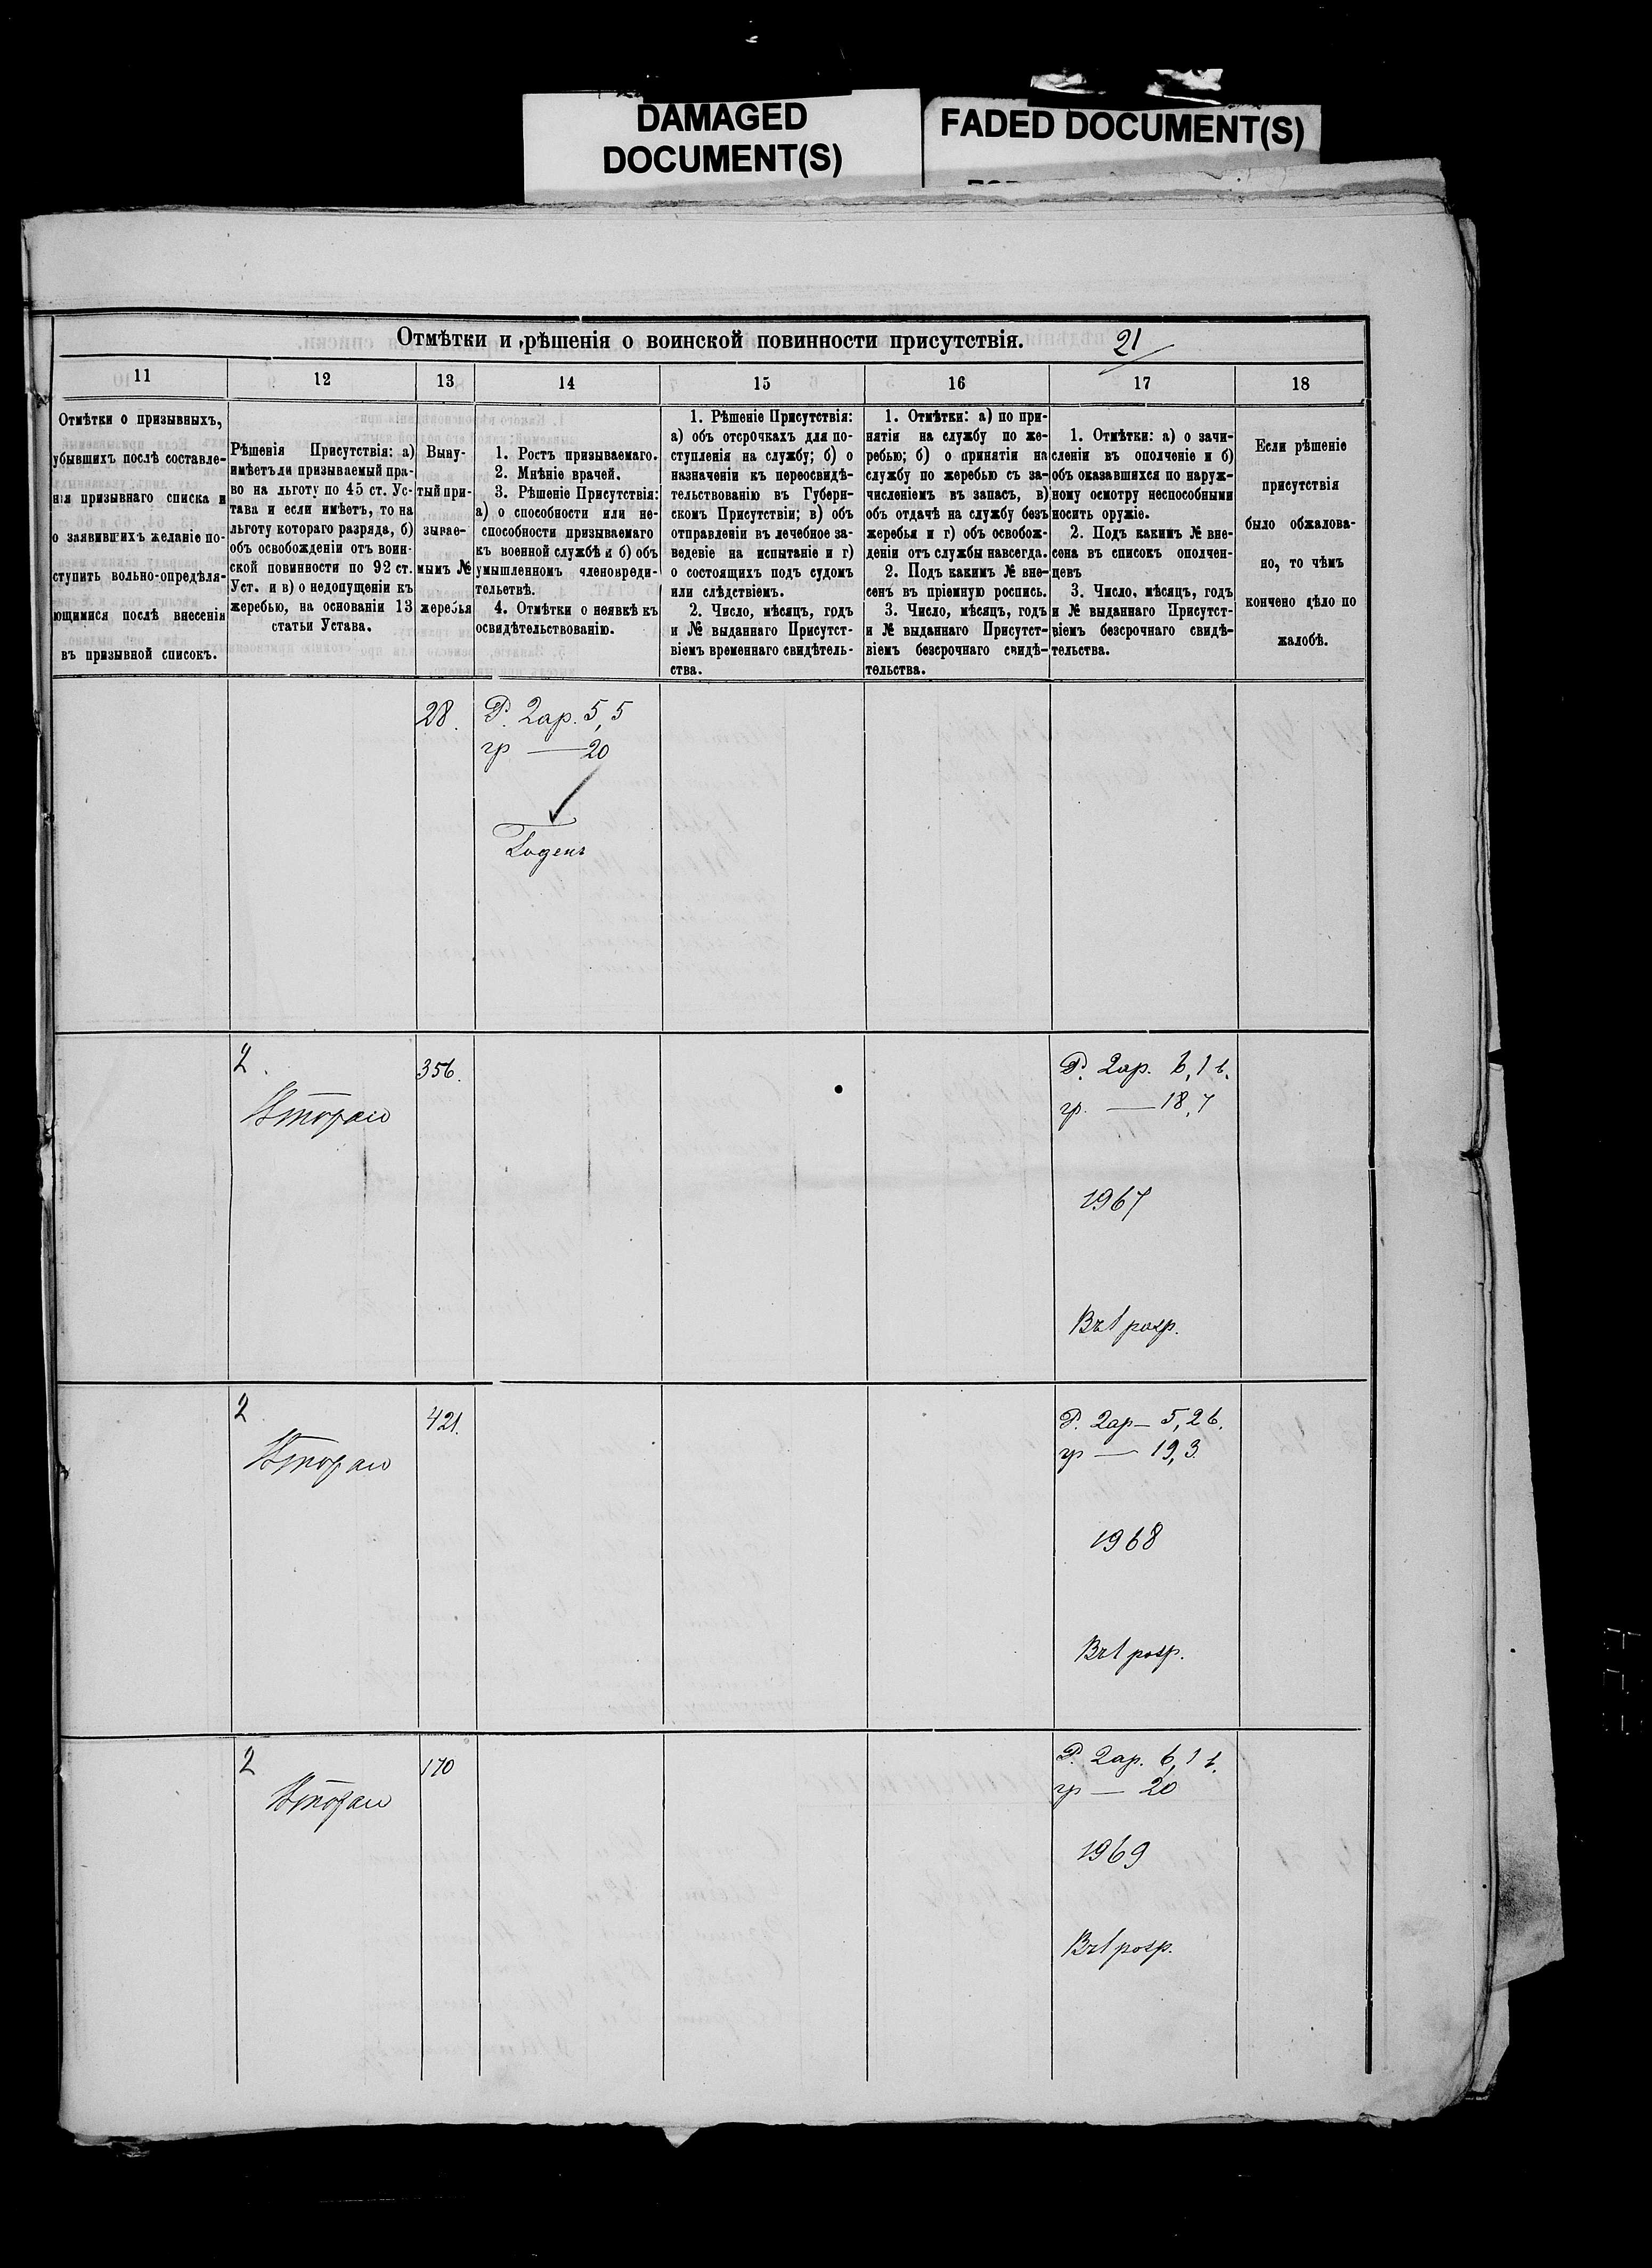 DAMAGED
DOCUMENT(S)
FADED DOCUMENT(S)
Отмѣтки и рѣшенія о воинской повинности присутствія.
21
11
12
13
14
15
16
17
18
Отмѣтки о призывныхъ,
убывшихъ послѣ составле-
нія призывнаго списка и
о заявившихъ желаніе по-
ступить вольно-опредѣля-
ющимися послѣ внесенія
въ призывной списокъ.
Рѣшенія Присутствія: а)
имѣетъ ли призываемый пра-
во на льготу по 45 ст. Ус-
тава и если имѣетъ, то на
льготу котораго разряда, б)
объ освобожденіи отъ воин-
ской повинности по 92 ст.
Уст. и в) о недопущеніи къ
жеребью, на основаніи 13
статьи Устава.
Выну-
тый при-
зывае-
мымъ №
жеребья
1. Ростъ призываемаго.
2. Мнѣніе врачей.
3. Рѣшеніе Присутствія:
а) о способности или не-
способности призываемаго
къ военной службѣ и б) объ
умышленномъ членовреди-
тельствѣ.
4. Отмѣтки о неявкѣ къ
освидѣтельствованію.
1. Рѣшеніе Присутствія:
а) объ отсрочкахъ для по-
ступленія на службу; б) о
назначеніи къ переосвидѣ-
тельствованію въ Губерн-
скомъ Присутствіи; в) объ
отправленіи въ лечебное за-
веденіе на испытаніе и г)
о состоящихъ подъ судомъ
или слѣдствіемъ.
2. Число, мѣсяцъ, годъ
и № выданнаго Присутст-
віемъ временнаго свидѣтель-
ства.
1. Отмѣтки: а) по при-
нятіи на службу по же-
ребью; б) о принятіи на
службу по жеребью съ за-
численіемъ въ запасъ, в)
объ отдачѣ на службу безъ
жеребья и г) объ освобож-
деніи отъ службы навсегда.
2. Подъ какимъ № вне-
сенъ въ пріемную роспись.
3. Число, мѣсяцъ, годъ
и № выданнаго Присутст-
віемъ безсрочнаго свидѣ-
тельства.
1. Отмѣтки: а) о зачи-
сленіи въ ополченіе и б)
объ оказавшихся по наруж-
ному осмотру неспособными
носить оружіе.
2. Подъ какимъ № вне-
сена въ списокъ ополчен-
цевъ
3. Число, мѣсяцъ, годъ
и № выданнаго Присутст-
віемъ безсрочнаго свидѣ-
тельства.
Если рѣшеніе
присутствія
было обжалова-
но, то чѣмъ
кончено дѣло по
жалобѣ.
28.
Р. 2ар. 5,5
гр — 20
Годенъ
2
Вторaго
356.
Р. 2ар. 6,1 в.
гр. — 18,7
1967
Въ 1 разр.
2
Втораго
421.
Р. 2ар — 5,2 в.
гр — 19,3.
1968
Въ 1 разр.
2
Втораго
170
Р. 2ар. 6,1 в.
гр — 20
1969
Въ 1 разр.